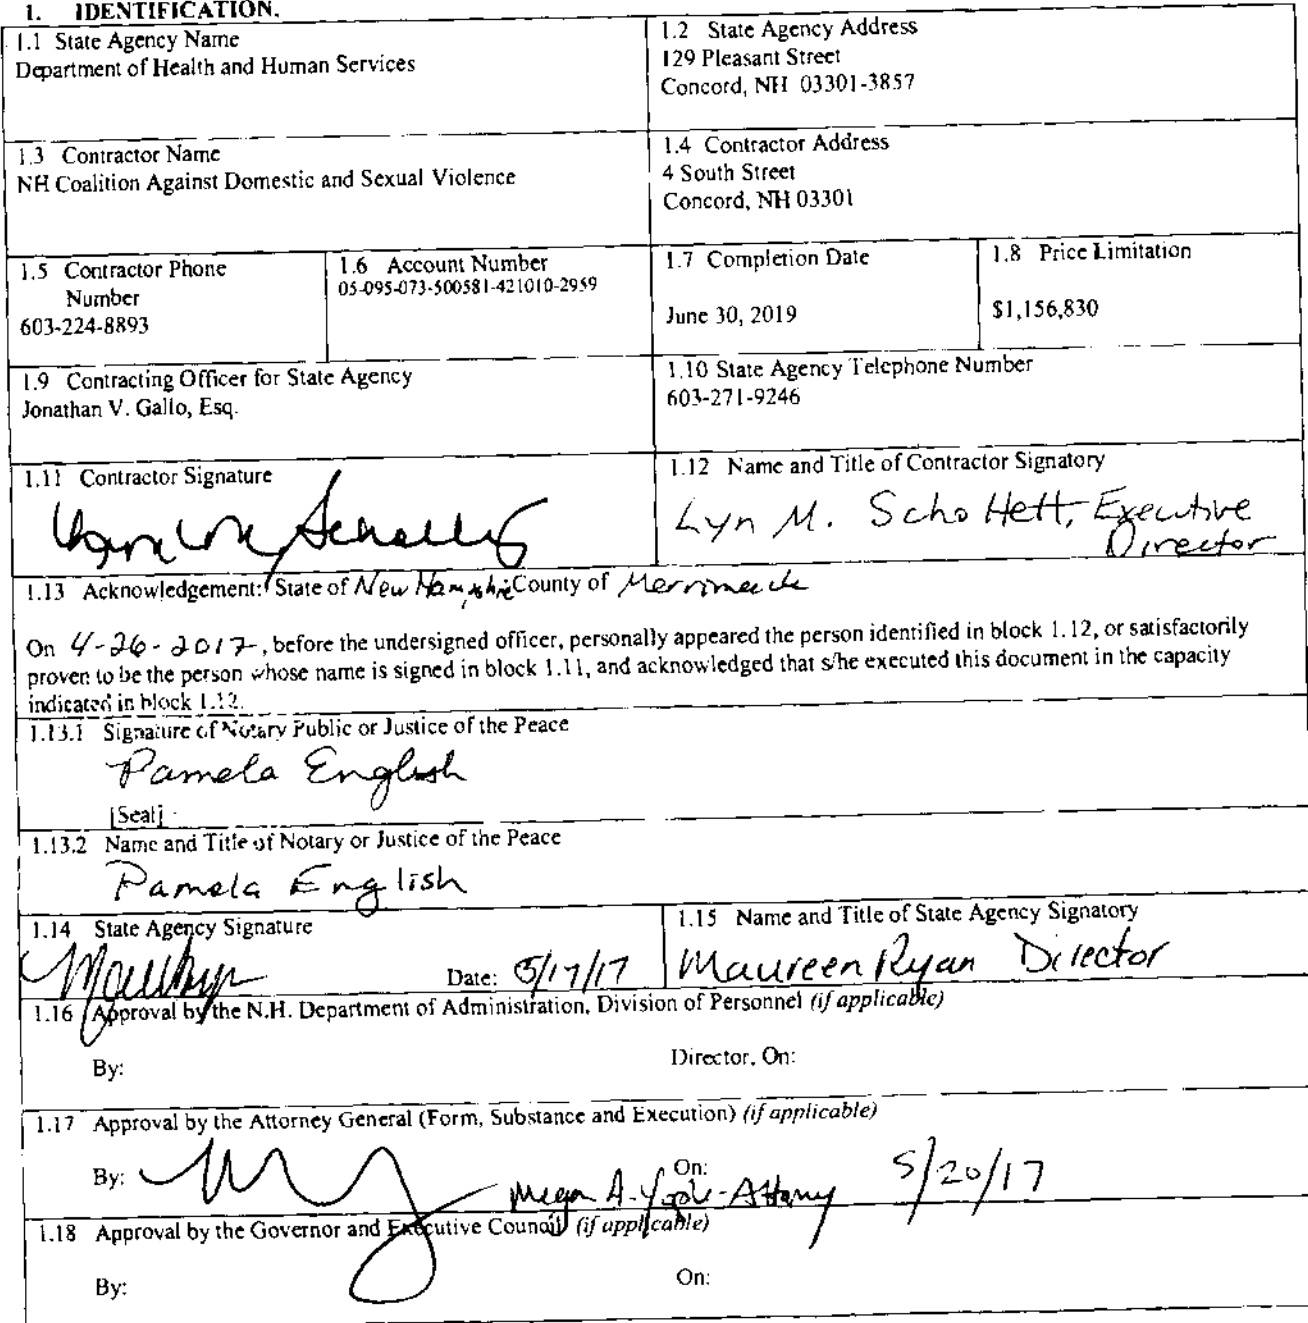 1. IDENTIFICATION.
1.1 State Agency Name
Department of Health and Human Services
1.2 State Agency Address
129 Pleasant Street
Concord, NH 03301-3857
1.3 Contractor Name
NH Coalition Against Domestic and Sexual Violence
1.4 Contractor Address
4 South Street
Concord, NH 03301
1.5 Contractor Phone
Number
603-224-8893
1.6 Account Number
05-095-073-500581-421010-2959
1.7 Completion Date
June 30, 2019
1.8 Price Limitation
$1,156,830
1.9 Contracting Officer for State Agency
Jonathan V. Gallo, Esq.
1.10 State Agency Telephone Number
603-271-9246
1.11 Contractor Signature
1.12 Name and Title of Contractor Signatory
Lyn M. Schollett, Executive
Director
1.13 Acknowledgement: State of New Hampshire County of Merrimack
On 4-26-2017, before the undersigned officer, personally appeared the person identified in block 1.12, or satisfactorily
proven to be the person whose name is signed in block 1.11, and acknowledged that s/he executed this document in the capacity
indicated in block 1.12.
1.13.1 Signature of Notary Public or Justice of the Peace
Pamela English
[Seal]
1.13.2 Name and Title of Notary or Justice of the Peace
Pamela English
1.14 State Agency Signature
Date: 5/17/17
1.15 Name and Title of State Agency Signatory
Maureen Ryan Director
1.16 Approval by the N.H. Department of Administration, Division of Personnel (if applicable)
By:
Director, On:
1.17 Approval by the Attorney General (Form, Substance and Execution) (if applicable)
By:
Megan A. - Attorney
On: 5/20/17
1.18 Approval by the Governor and Executive Council (if applicable)
By:
On: